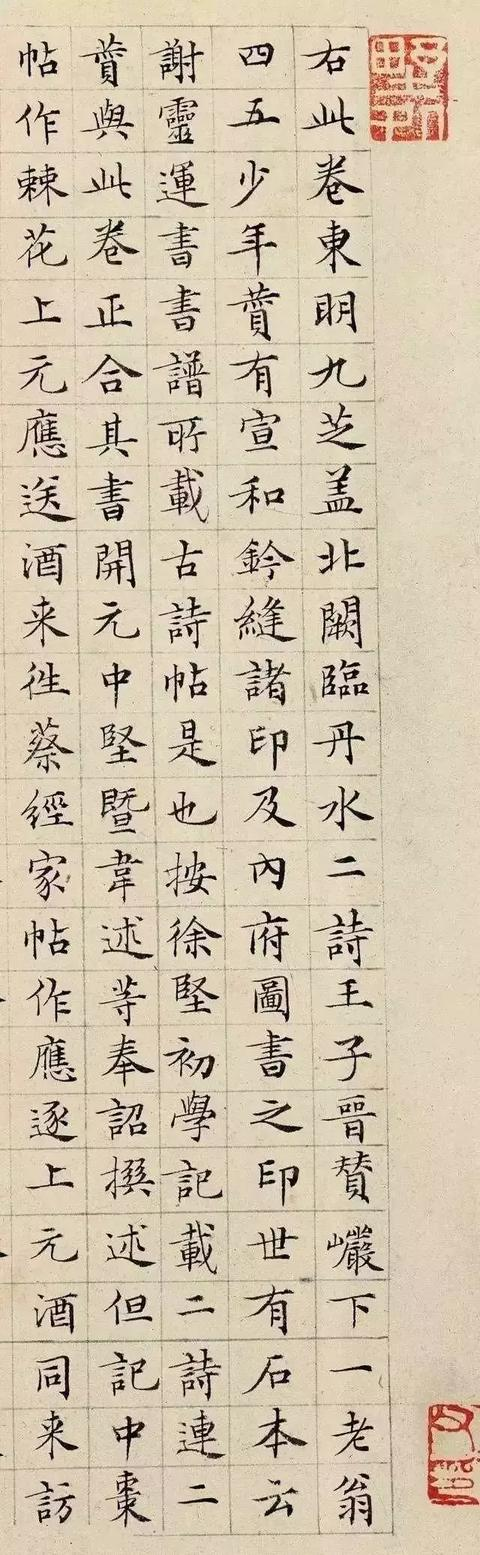 右此卷東明九芝盖北闕臨丹水二詩王子晋賛巗下一老翁
四五少年賛有宣和鈐縫諸印及內府圖書之印世有石本云
謝靈運書書譜所載古詩帖是也按徐堅初學記載二詩連二
賛與此卷正合其書開元中堅暨韋述等奉詔撰述但記中棗
帖作棘花上元應送酒来徃蔡經家帖作應逐上元酒同来訪